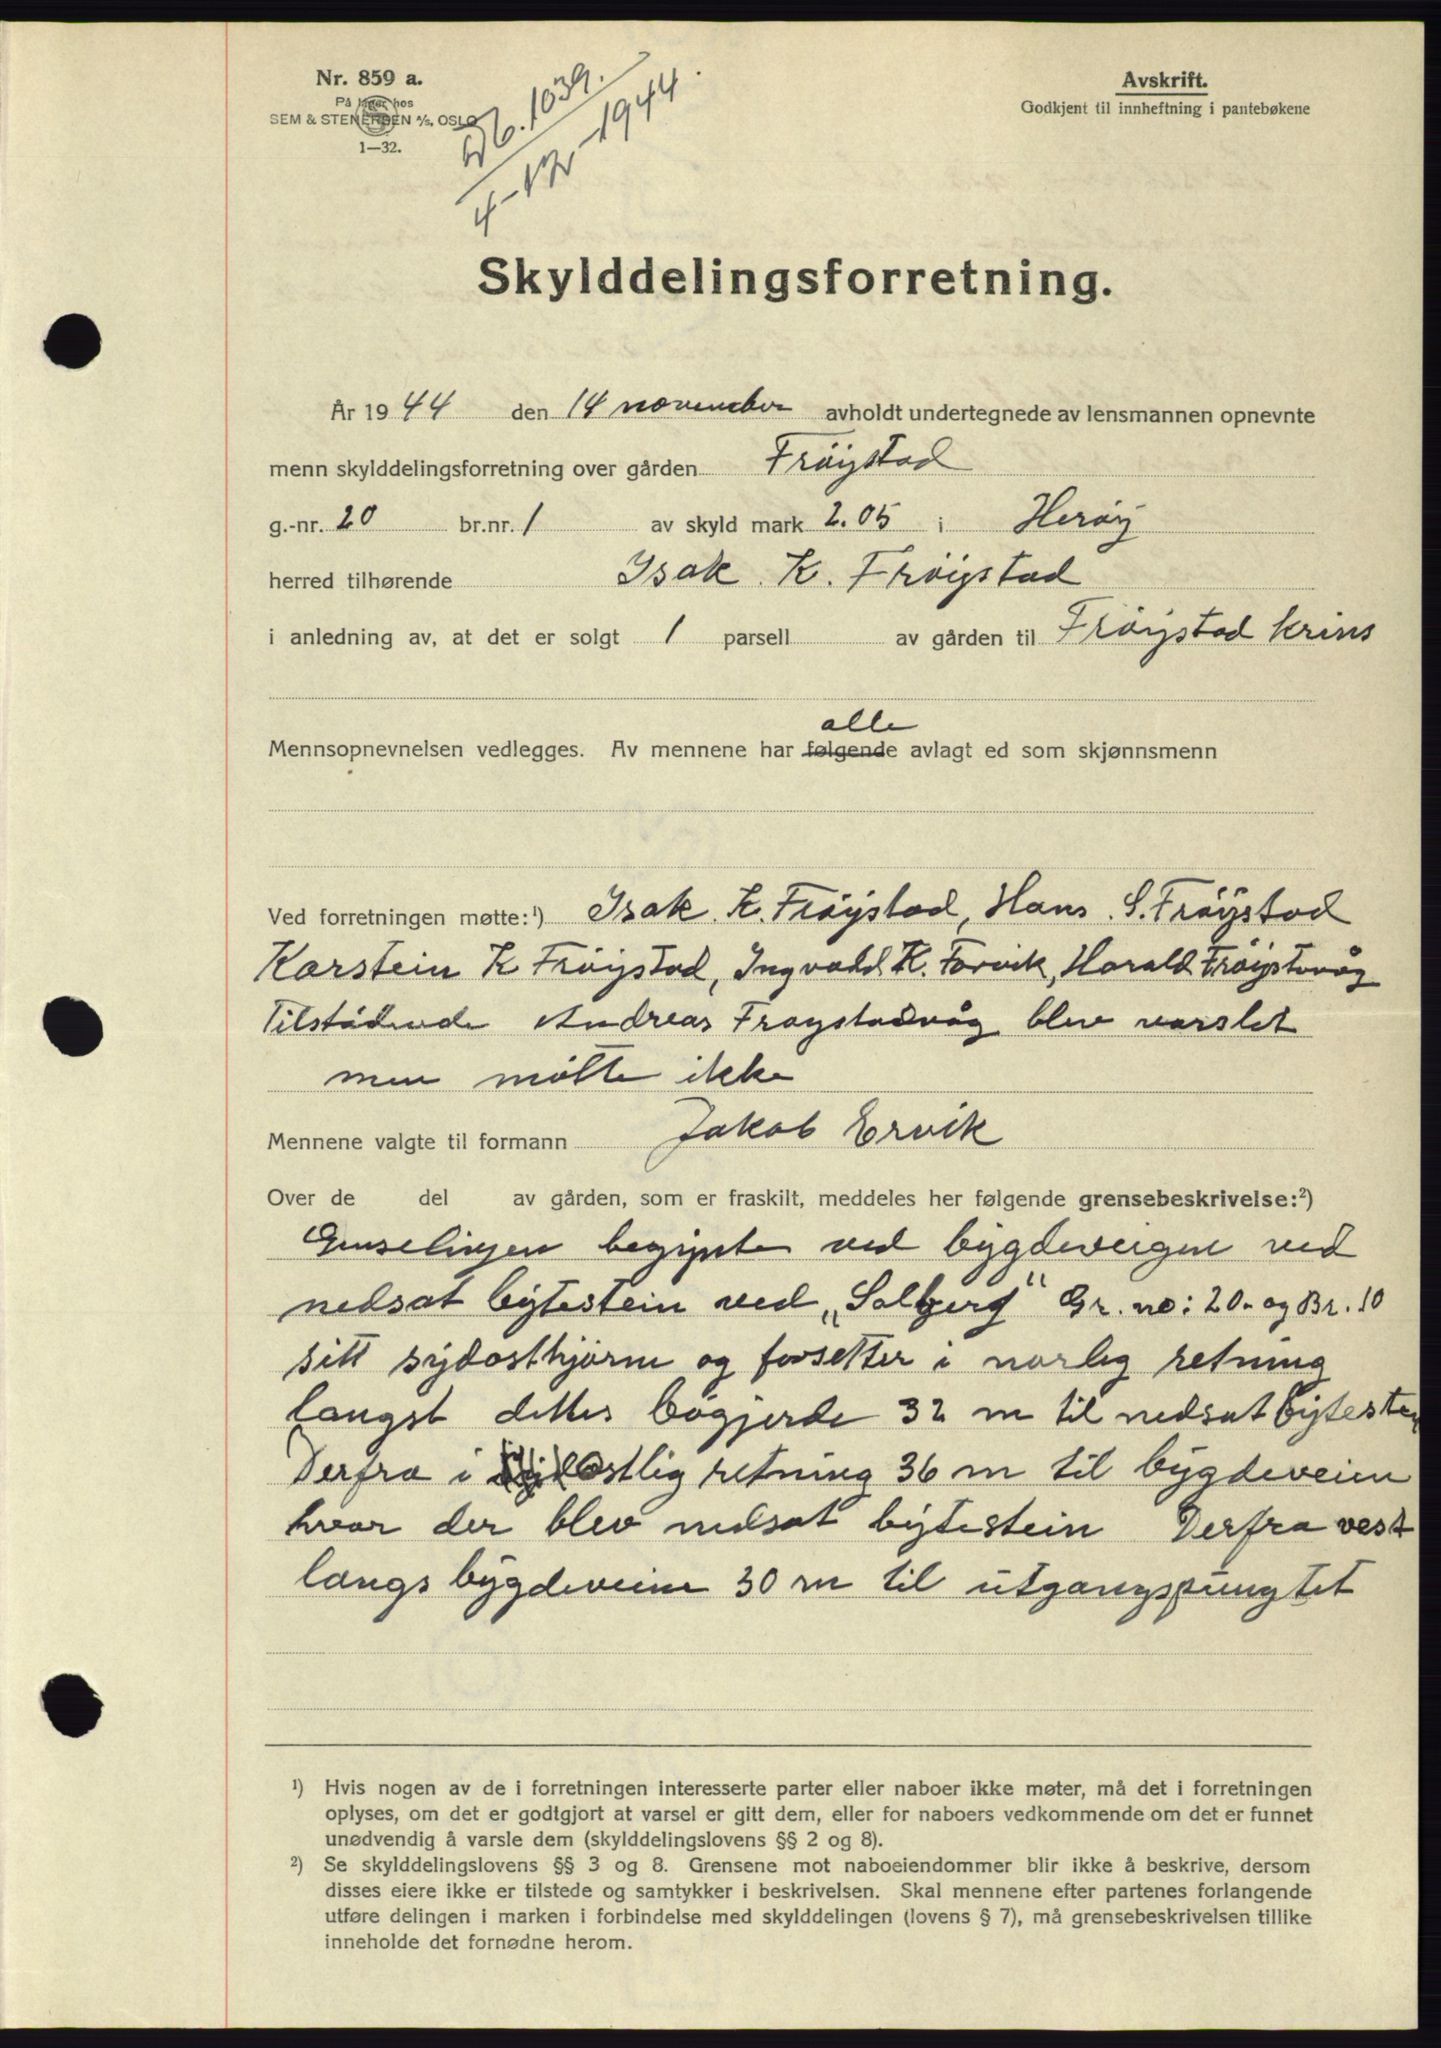 Nr. 859 a.
På lager hos
SEM & STENERSEN A/S, OSLO
1—32.
Db. 1039.
4-12-1944.
Avskrift.
Godkjent til innheftning i pantebøkene
Skylddelingsforretning.
År 1944 den 14 november avholdt undertegnede av lensmannen opnevnte
menn skylddelingsforretning over gården Frøystad
g.-nr. 20 br.nr. 1 av skyld mark 2.05 i Herøy
herred tilhørende Isak K. Frøystad
i anledning av, at det er solgt 1 parsell av gården til Frøystad krins
alle
Mennsopnevnelsen vedlegges. Av mennene har følgende avlagt ed som skjønnsmenn
Ved forretningen møtte:¹) Isak K. Frøystad, Hans S. Frøystad
Karstein K Frøystad, Ingvald K. Forvik, Harald Frøystavåg
Tilstødende Andreas Frøystadvåg blev varslet
men møtte ikke
Mennene valgte til formann Jakob Ervik
Over de del av gården, som er fraskilt, meddeles her følgende grensebeskrivelse:²)
begynte ved bygdeveigen ved
nedsat bytestein ved „Solberg" Gr. no: 20. og Br. 10
sitt sydosthjørne og forsetter i norlig retning
langst dettes bøgjerde 32 m til nedsat bytestein
Derfra i ostlig retning 36 m til bygdeveien
hvor der blev nedsat bytestein Derfra vest
langs bygdeveien 30 m til utgangspungtet
¹) Hvis nogen av de i forretningen interesserte parter eller naboer ikke møter, må det i forretningen
oplyses, om det er godtgjort at varsel er gitt dem, eller for naboers vedkommende om det er funnet
unødvendig å varsle dem (skylddelingslovens §§ 2 og 8).
²) Se skylddelingslovens §§ 3 og 8. Grensene mot naboeiendommer blir ikke å beskrive, dersom
disses eiere ikke er tilstede og samtykker i beskrivelsen. Skal mennene efter partenes forlangende
utføre delingen i marken i forbindelse med skylddelingen (lovens § 7), må grensebeskrivelsen tillike
inneholde det fornødne herom.